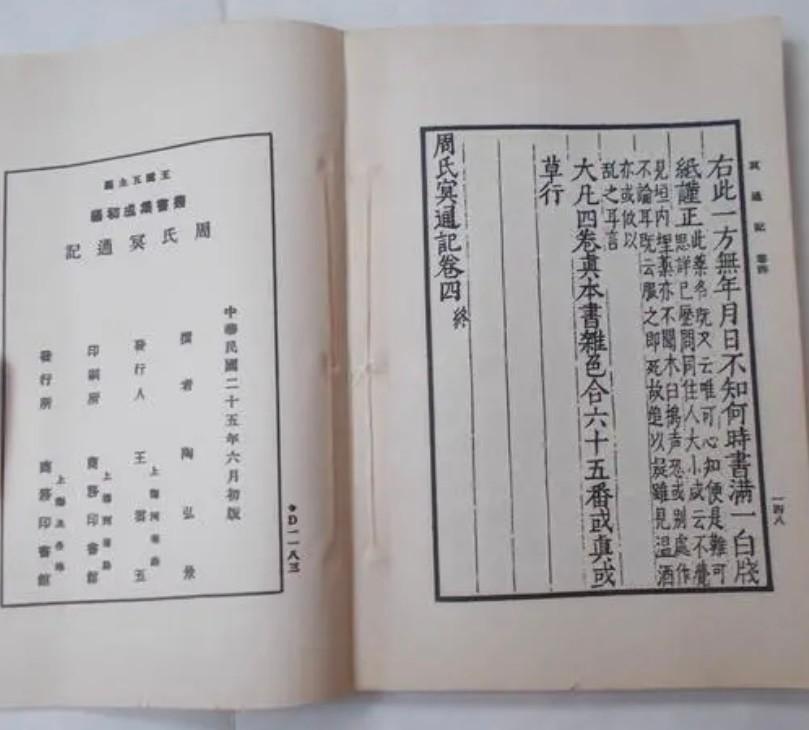 冥通記 卷四
一四八
右此一方無年月日不知何時書滿一白牋
紙謹正
此藥名既又云唯可心知便是難可
思詳已歷問同住人大小咸云不覺
見垣内埋藥亦不聞木臼擣声恐或別處作
不論耳既云服之即死故以疑雖見温酒
亦或似以
乱之耳言
大凡四卷真本書雜色合六十五番或真或
草行
周氏冥通記卷四 終
◆D一一八三
王雲五主編
叢書集成初編
周氏冥通記
中華民國二十五年六月初版
撰者 陶弘景
上海河南路
發行人 王雲五
上海河南路
印刷所 商務印書館
上海及各埠
發行所 商務印書館